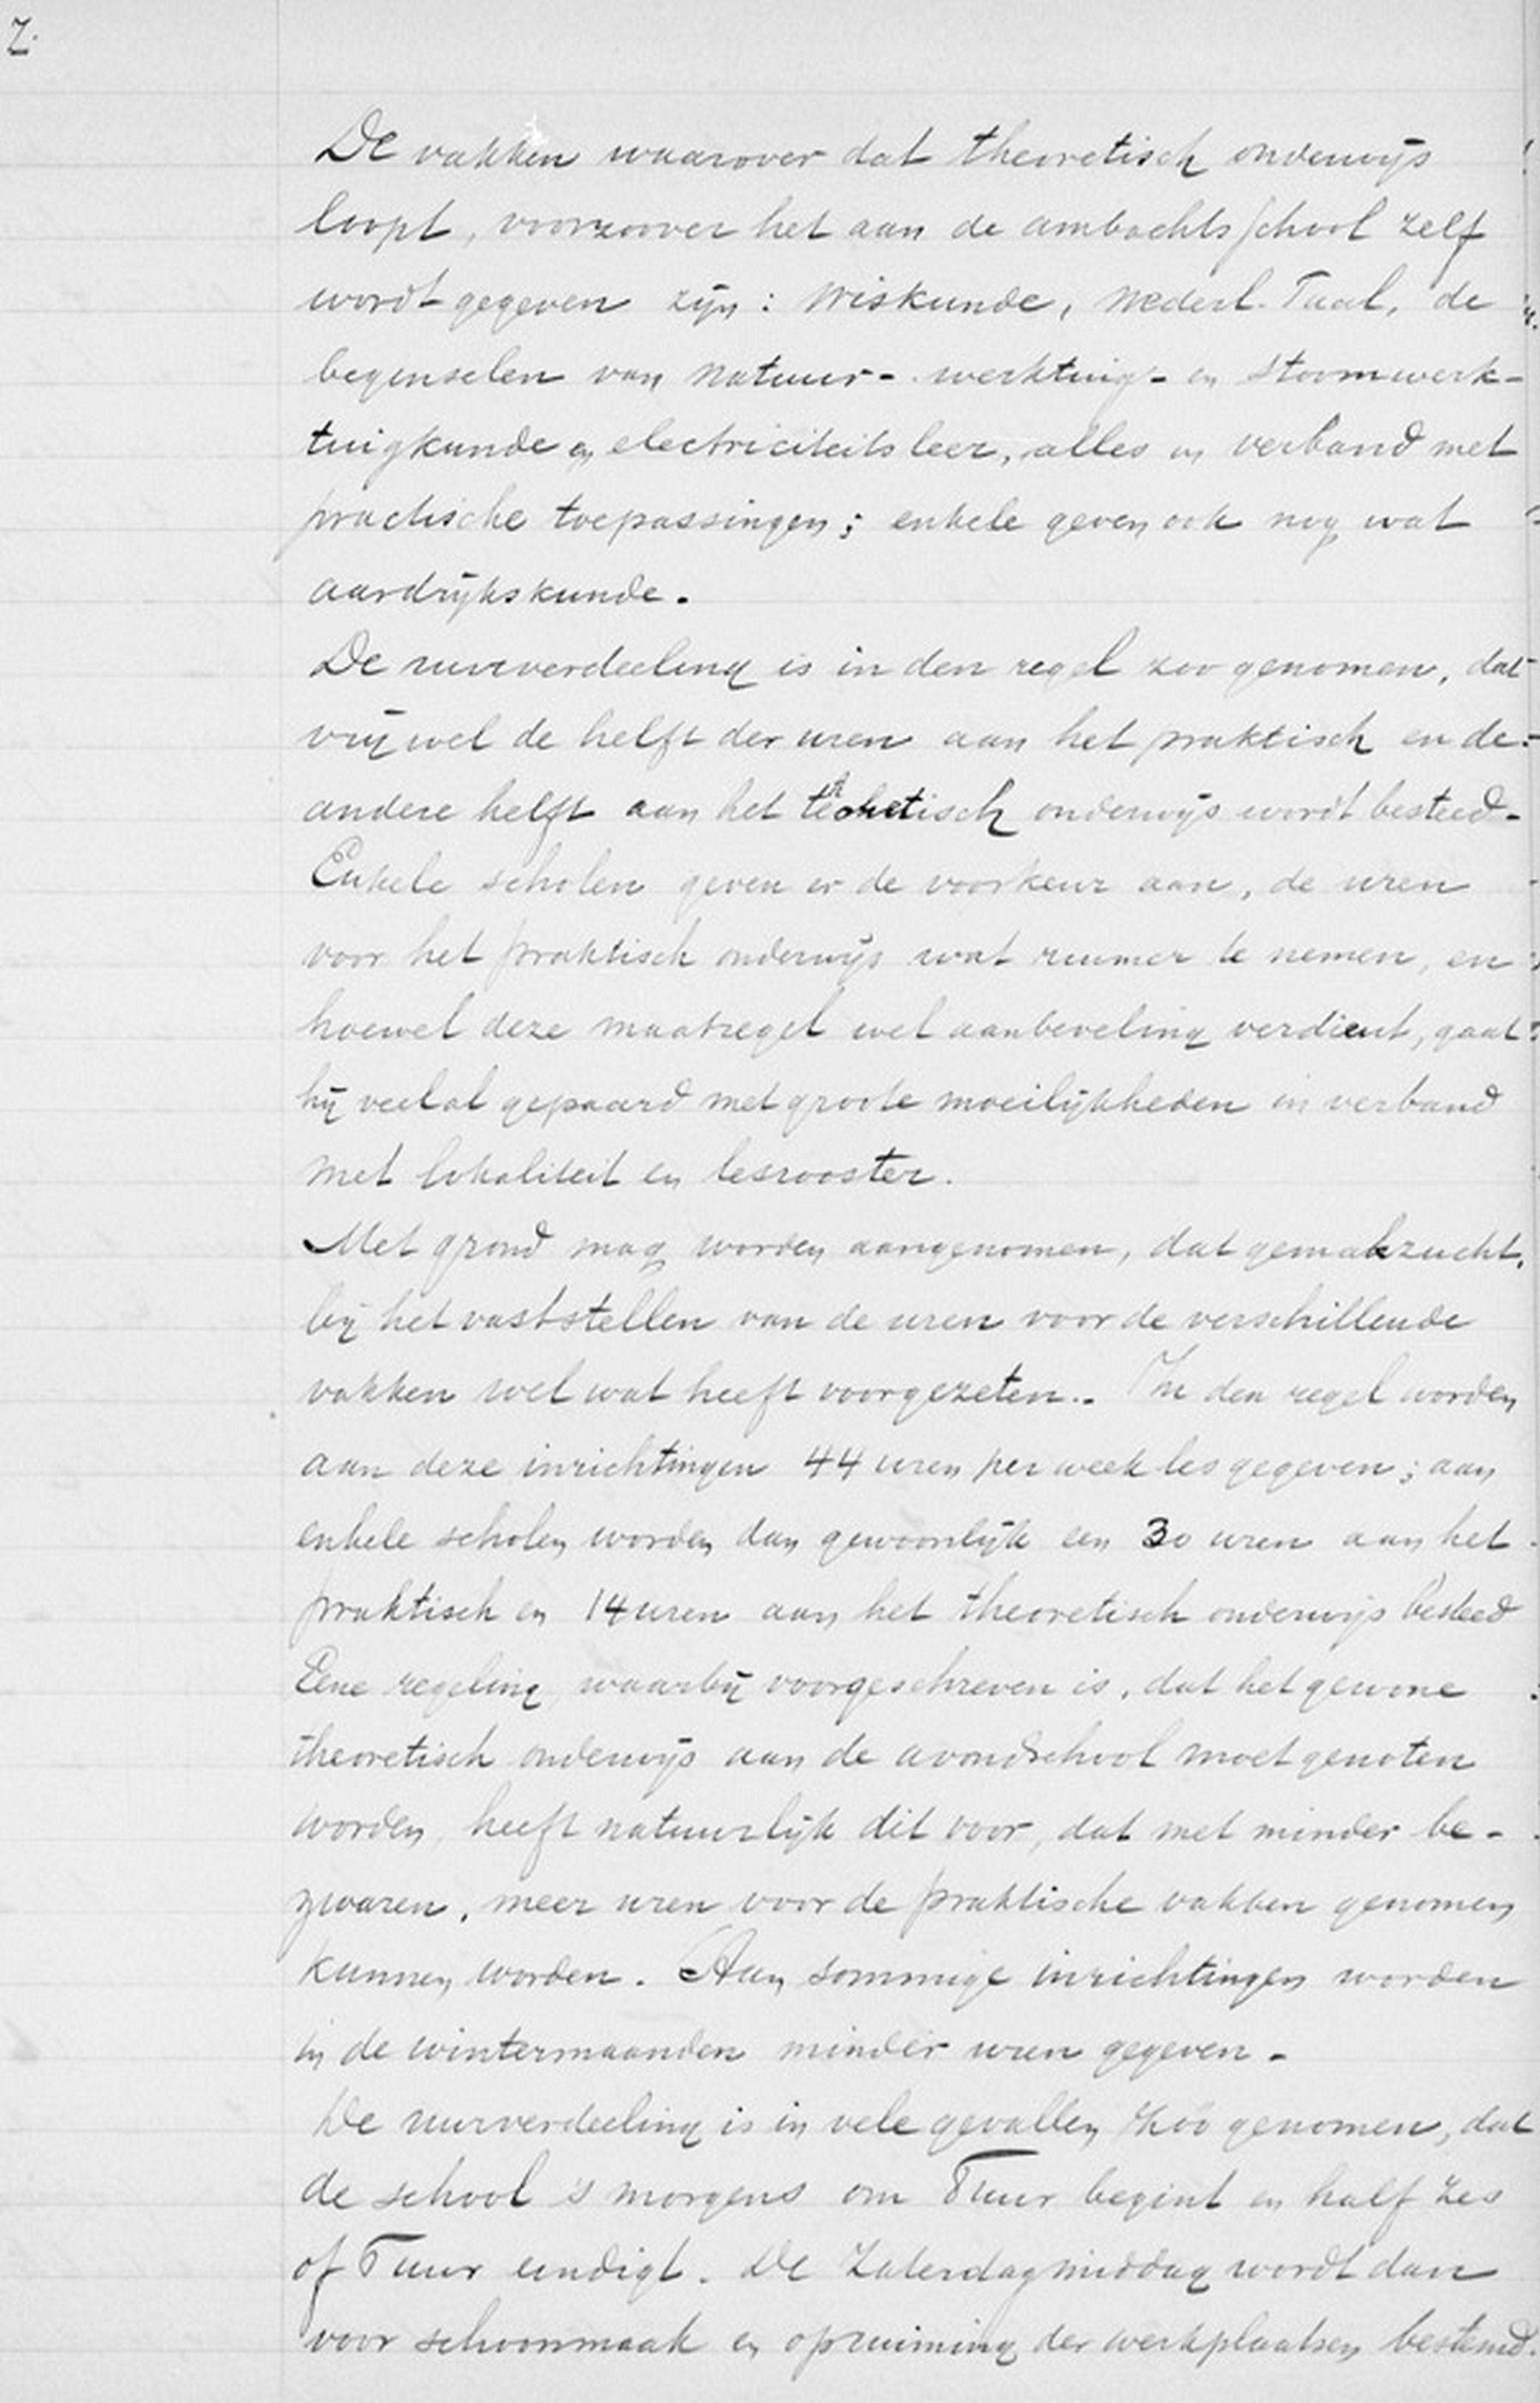 7.
De vakken waarover dat theoretisch onderwijs
loopt, voorzoover het aan de ambachtsschool zelf
wordt gegeven zijn: Wiskunde, Nederl. Taal, de
beginselen van Natuur- werktuig- en Stoomwerk-
tuigkunde en electriciteitsleer, alles in verband met
practische toepassingen; enkele geven ook nog wat
aardrijkskunde.
De uurverdeeling is in den regel zoo genomen, dat
vrij wel de helft der uren aan het praktisch en de
andere helft aan het onderwijs wordt besteed.
Enkele scholen geven er de voorkeur aan, de uren
voor het praktisch onderwijs wat ruimer te nemen, en
hoewel deze maatregel wel aanbeveling verdient, gaat
hij veelal gepaard met groote moeilijkheden in verband
met lokaliteit en lesrooster.
Met grond mag worden aangenomen, dat gemakzucht,
bij het vaststellen van de uren voor de verschillende
vakken wel wat heeft voorgezeten. In den regel worden
aan deze inrichtingen 44 uren per week les gegeven; aan
enkele scholen worden dan gewoonlijk een 30 uren aan het
praktisch en 14 uren aan het theoretisch onderwijs besteed
Eene regeling, waarbij voorgeschreven is, dat het gewone
theoretisch onderwijs aan de avondschool moet genoten
worden, heeft natuurlijk dit voor, dat met minder be-
zwaren, meer uren voor de praktische vakken genomen
kunnen worden. Aan sommige inrichtingen worden
in de wintermaanden minder uren gegeven.
De uurverdeeling is in vele gevallen zoo genomen, dat
de school 's morgens om 8 uur begint en half zes
of 6 uur eindigt. De Zaterdagmiddag wordt dan
voor schoonmaak en opruiming der werkplaatsen bestemd.